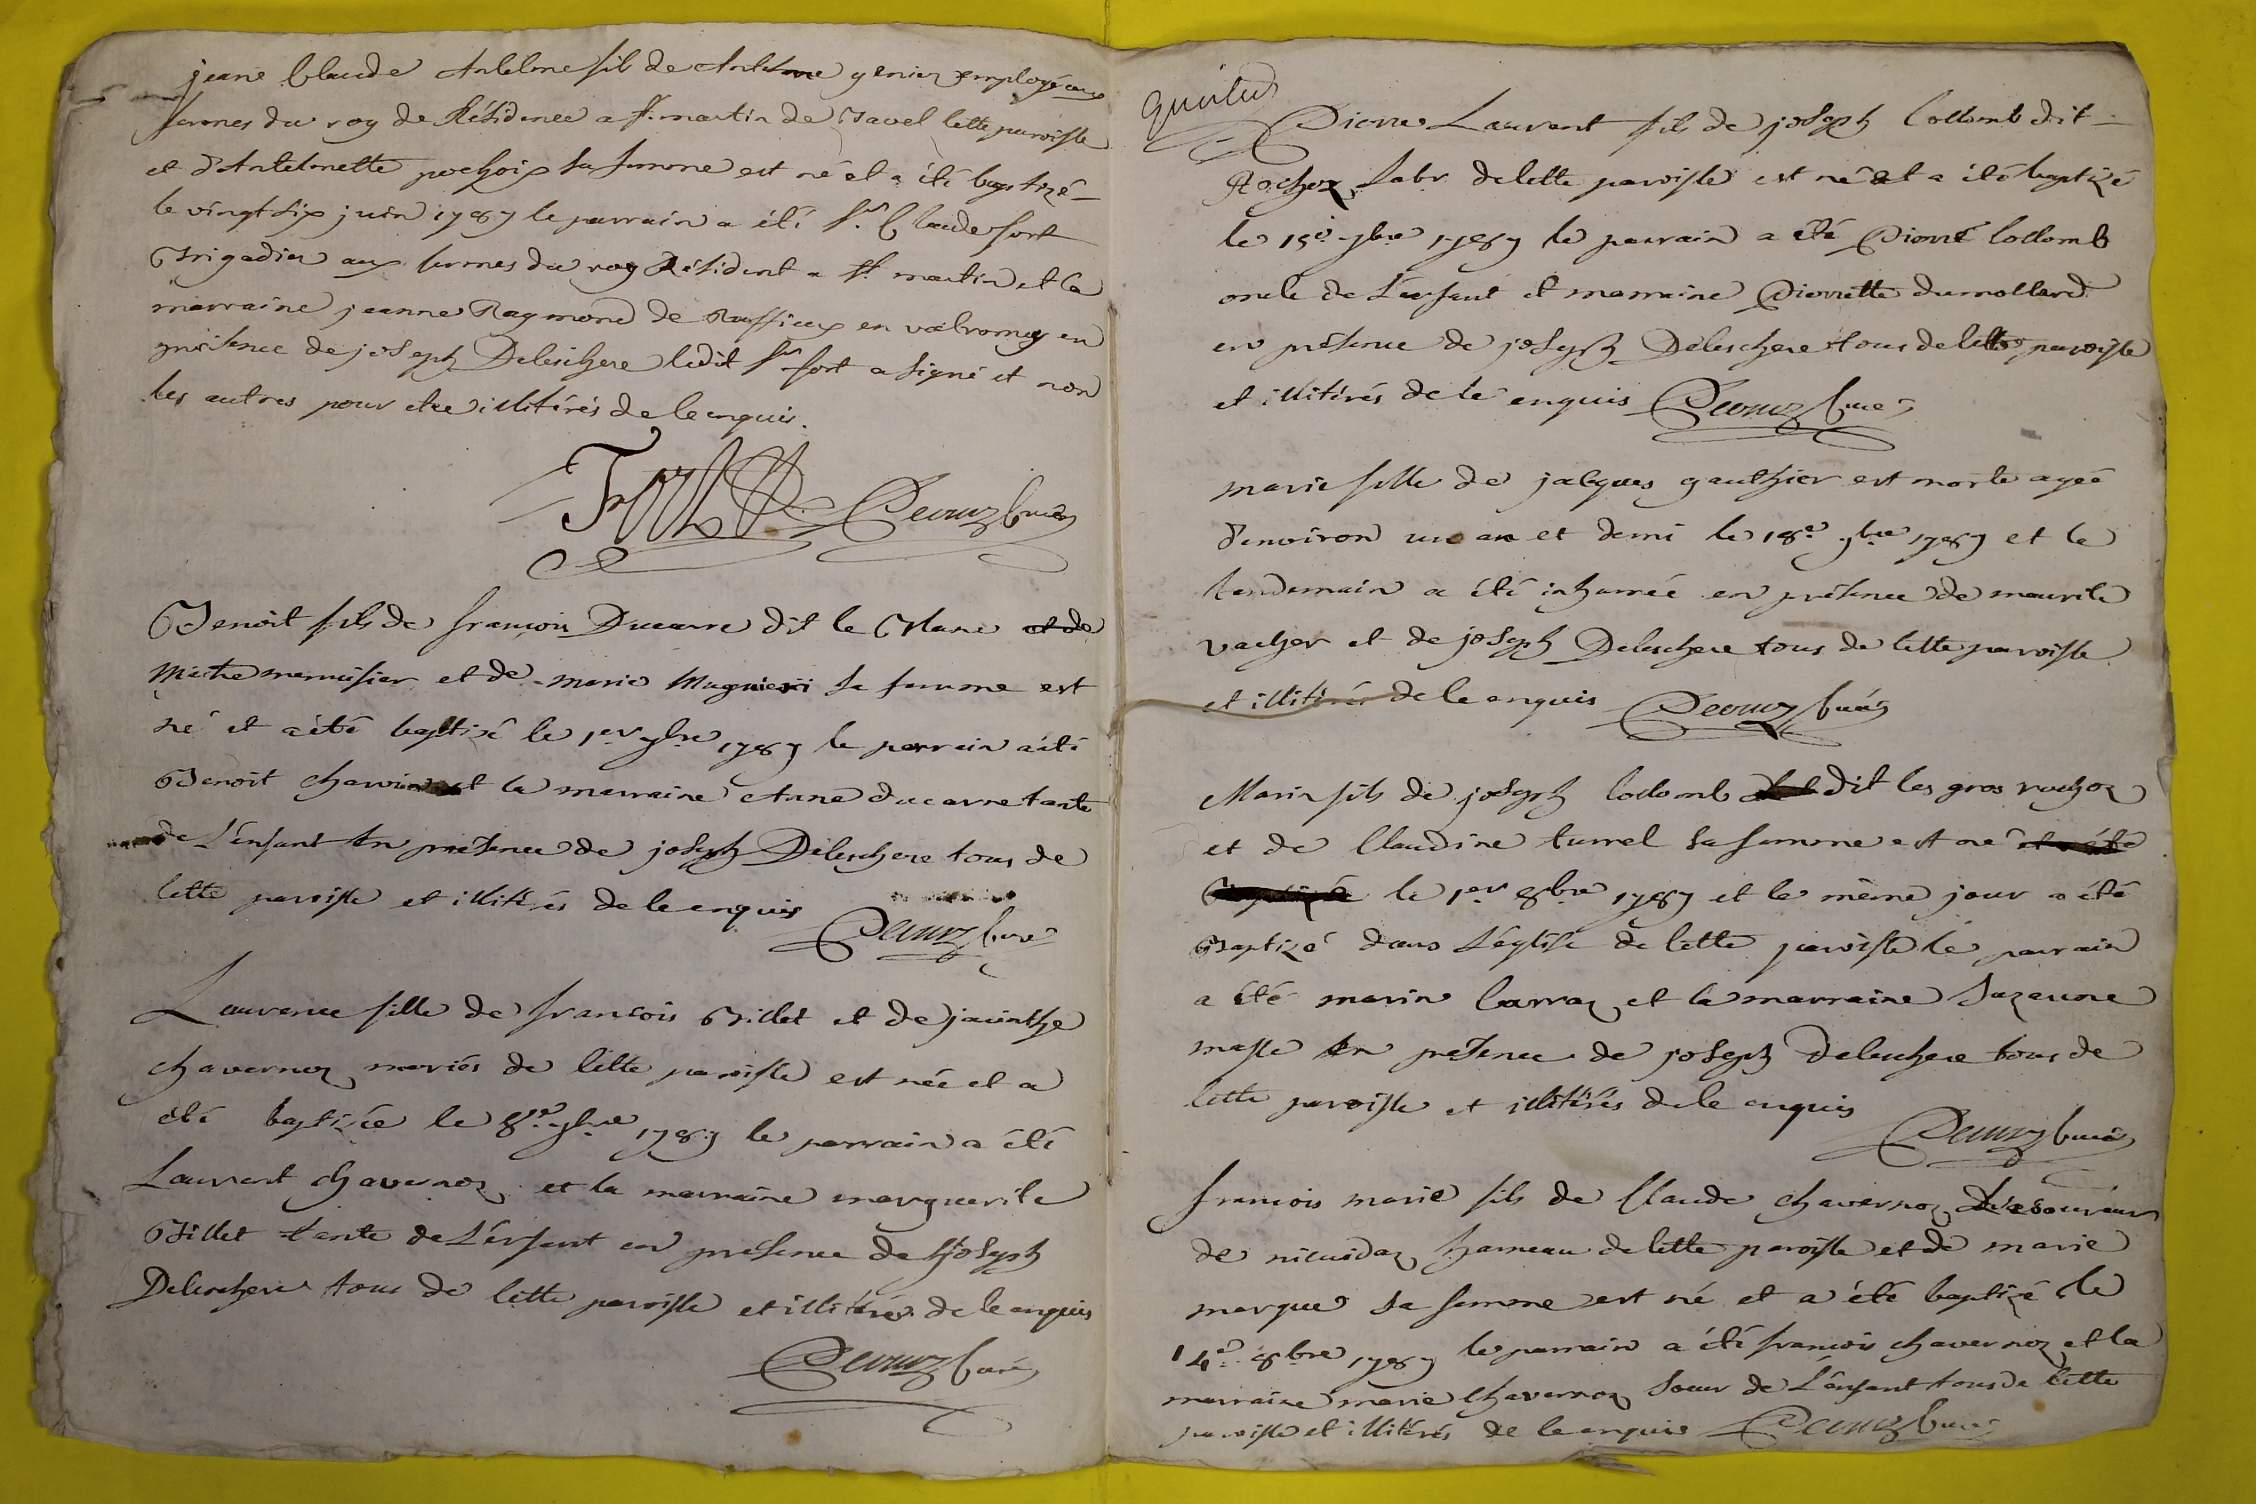 jean Claude Antelme fils de Antelme genier employé aux
fermes du roy de Résidence a st. martin de Bavel cette paroisse
et d'Antelmette pochoix sa femme est né et a été baptizé
le vingt six juin 1787 le parrain a été sr. Claude fort
Brigadier aux fermes du roy Résident a st. martin et la
marraine jeanne Raymond de Ruffieux en valromey en
présence de joseph Deleschere ledit sr fort a signé et non
les autres pour etre illitérés de ce enquis.
Fort curé
Benoit fils de françois Ducarre dit le Blanc et de
Maitre menuisier et de marie sa femme est
né et a été baptizé le 1er 7bre 1787 le parrain a été
Benoit et la marraine Anne ducarre tante
de L'enfant en présence de joseph Deleschere tous de
cette paroisse et illitérés de ce enquis
curé
Laurence fille de françois Billet et de jacinthe
chavernoz mariés de cette paroisse est née et a
été baptizée le 8e. 7bre 1787 le parrain a été
Laurent chavernoz et la marraine marguerite
Billet tante de L'enfant en présence de joseph
Deleschere tous de cette paroisse et illitérés de ce enquis
curé
Pierre Laurent fils de joseph Collomb dit
Rochon Labr. de cette paroisse est né et a été baptizé
le 15e 7bre 1787 le parrain a été Pierre Collomb
oncle de L'enfant et marraine Pierrette dumollard
en présence de joseph Deleschere tous de cette paroisse
et illitérés de ce enquis curé
marie fille de jacques gauthier est morte agée
d'environ un an et demi le 18e. 7bre 1787 et le
lendemain a été inhumée en présence de maurice
vacher et de joseph Deleschere tous de cette paroisse
et illitérés de ce enquis curé
Marin fils de joseph Collomb dit les gros rochon
et de Claudine turrel sa femme est né et a été
baptizé le 1er 8bre 1787 et le même jour a été
Baptizé dans L'église de cette paroisse le parrain
a été marin Carraz et la marraine Suzanne
masse en présence de joseph Deleschere tous de
cette paroisse et illitérés de ce enquis
curé
françois marie fils de Claude chavernoz
de hameau de cette paroisse et de marie
marque sa femme est né et a été baptizé le
14e. 8bre 1787 le parrain a été françois chavernoz et la
marraine marie chavernoz soeur de L'enfant tous de cette
paroisse et illitérés de ce enquis curé